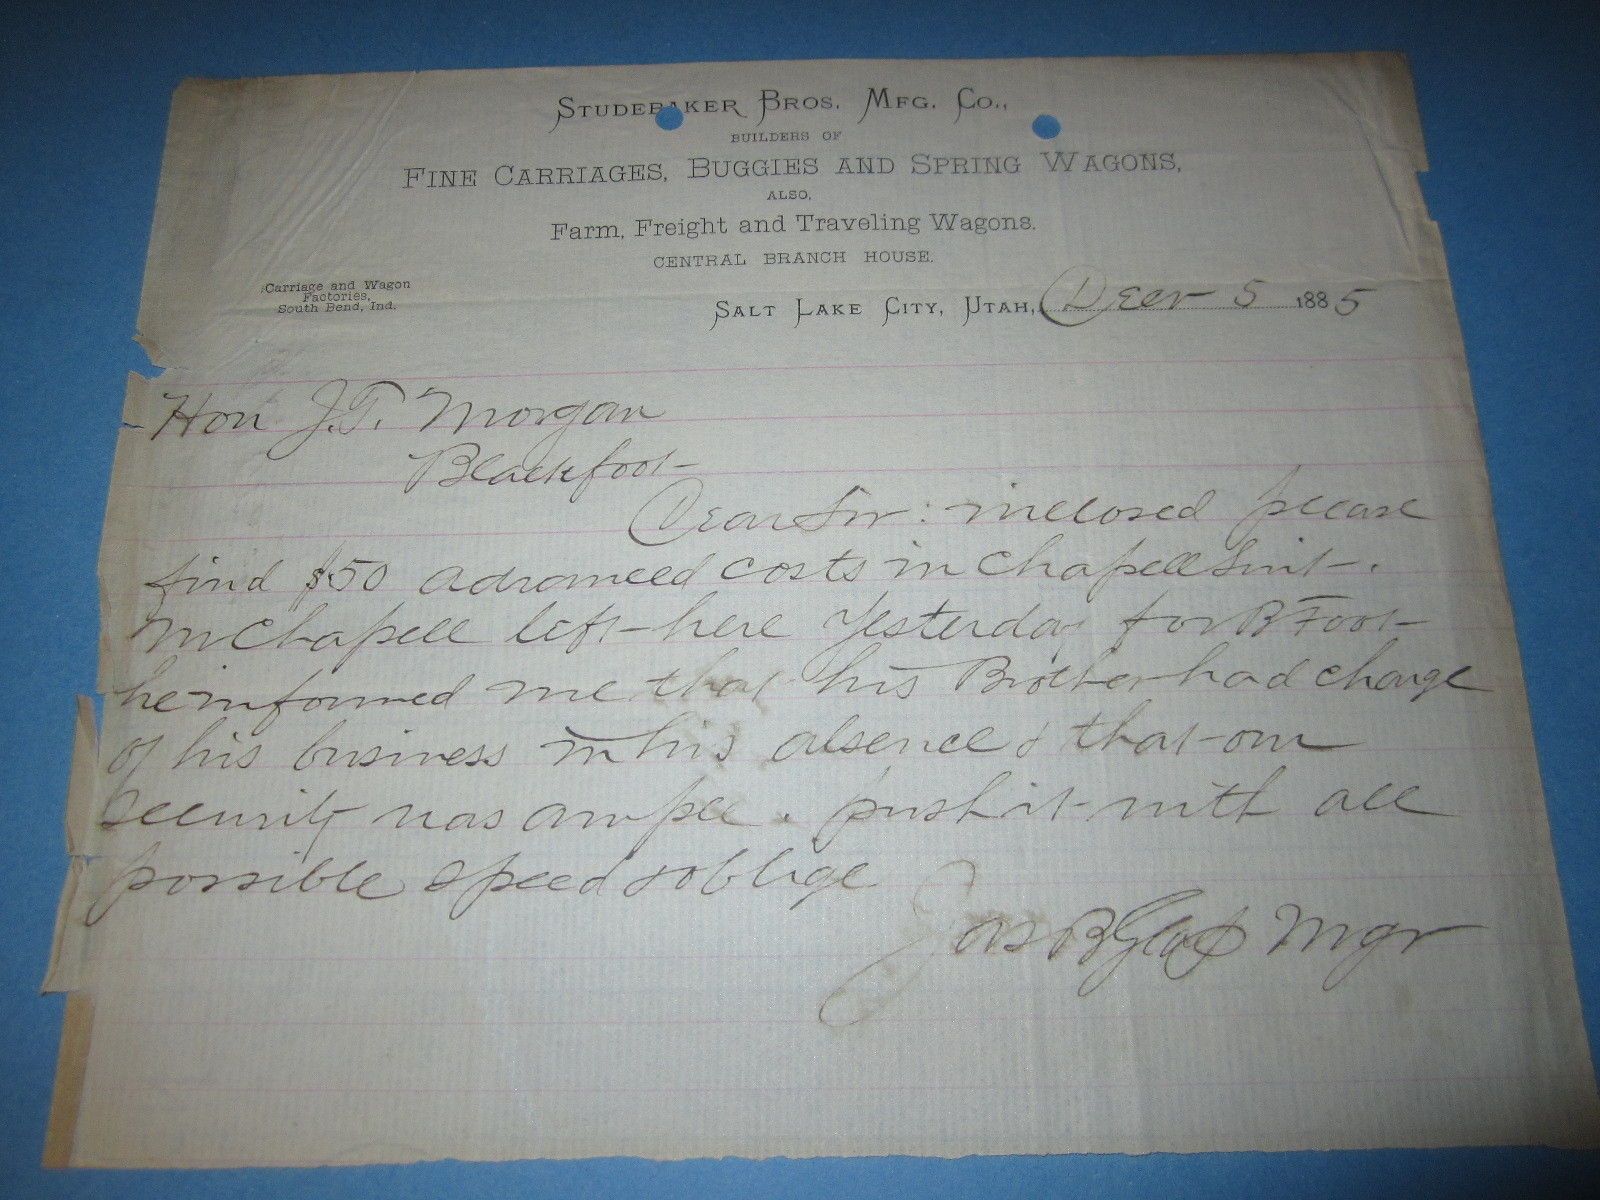 STUDEBAKER BROS. MFG. CO.,
BUILDERS OF
FINE CARRIAGES, BUGGIES AND SPRING WAGONS,
ALSO,
Farm, Freight and Traveling Wagons.
CENTRAL BRANCH HOUSE.
Carriage and Wagon
Factories,
South Bend, Ind.
SALT LAKE CITY, UTAH, Decr 5 1885
Hon J.T. Morgan
Blackfoot
Dear Sir: inclosed please
find $50 advanced costs in Chapell Suit.
Mr Chapell left here Yesterday for B Foot
he informed me that his Brother had charge
of his business in his absence & that our
Security was ample. push it with all
possible speed & oblige
Jas B Mgr